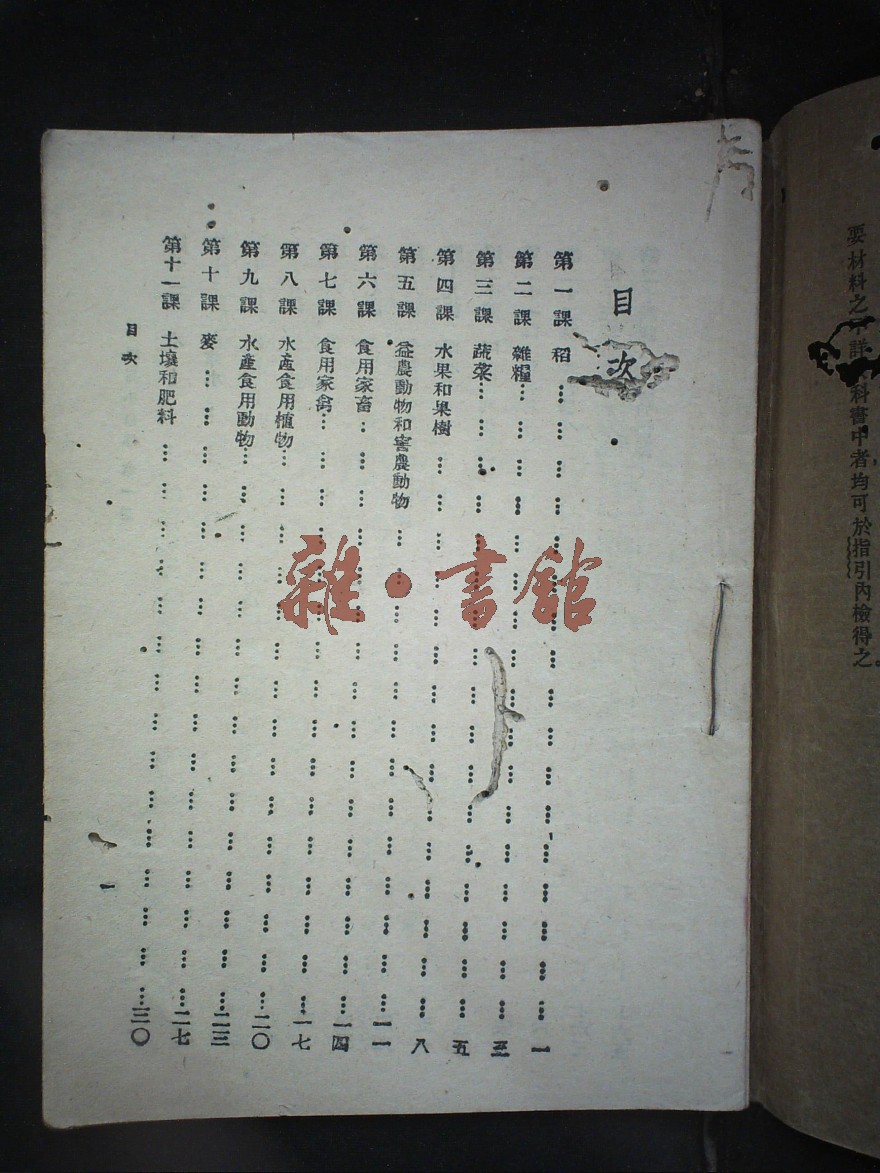 要材料之 詳 科書中者均可於指引內檢得之。
目次
第一課 稻…………一
第二課 雜糧…………三
第三課 蔬菜…………五
第四課 水果和果樹…………八
第五課 益農動物和害農動物…………一一
第六課 食用家畜…………一四
第七課 食用家禽…………一七
第八課 水產食用植物…………二〇
第九課 水產食用動物…………二三
第十課 麥…………二七
第十一課 土壤和肥料…………三〇
目次
一
雜·書館